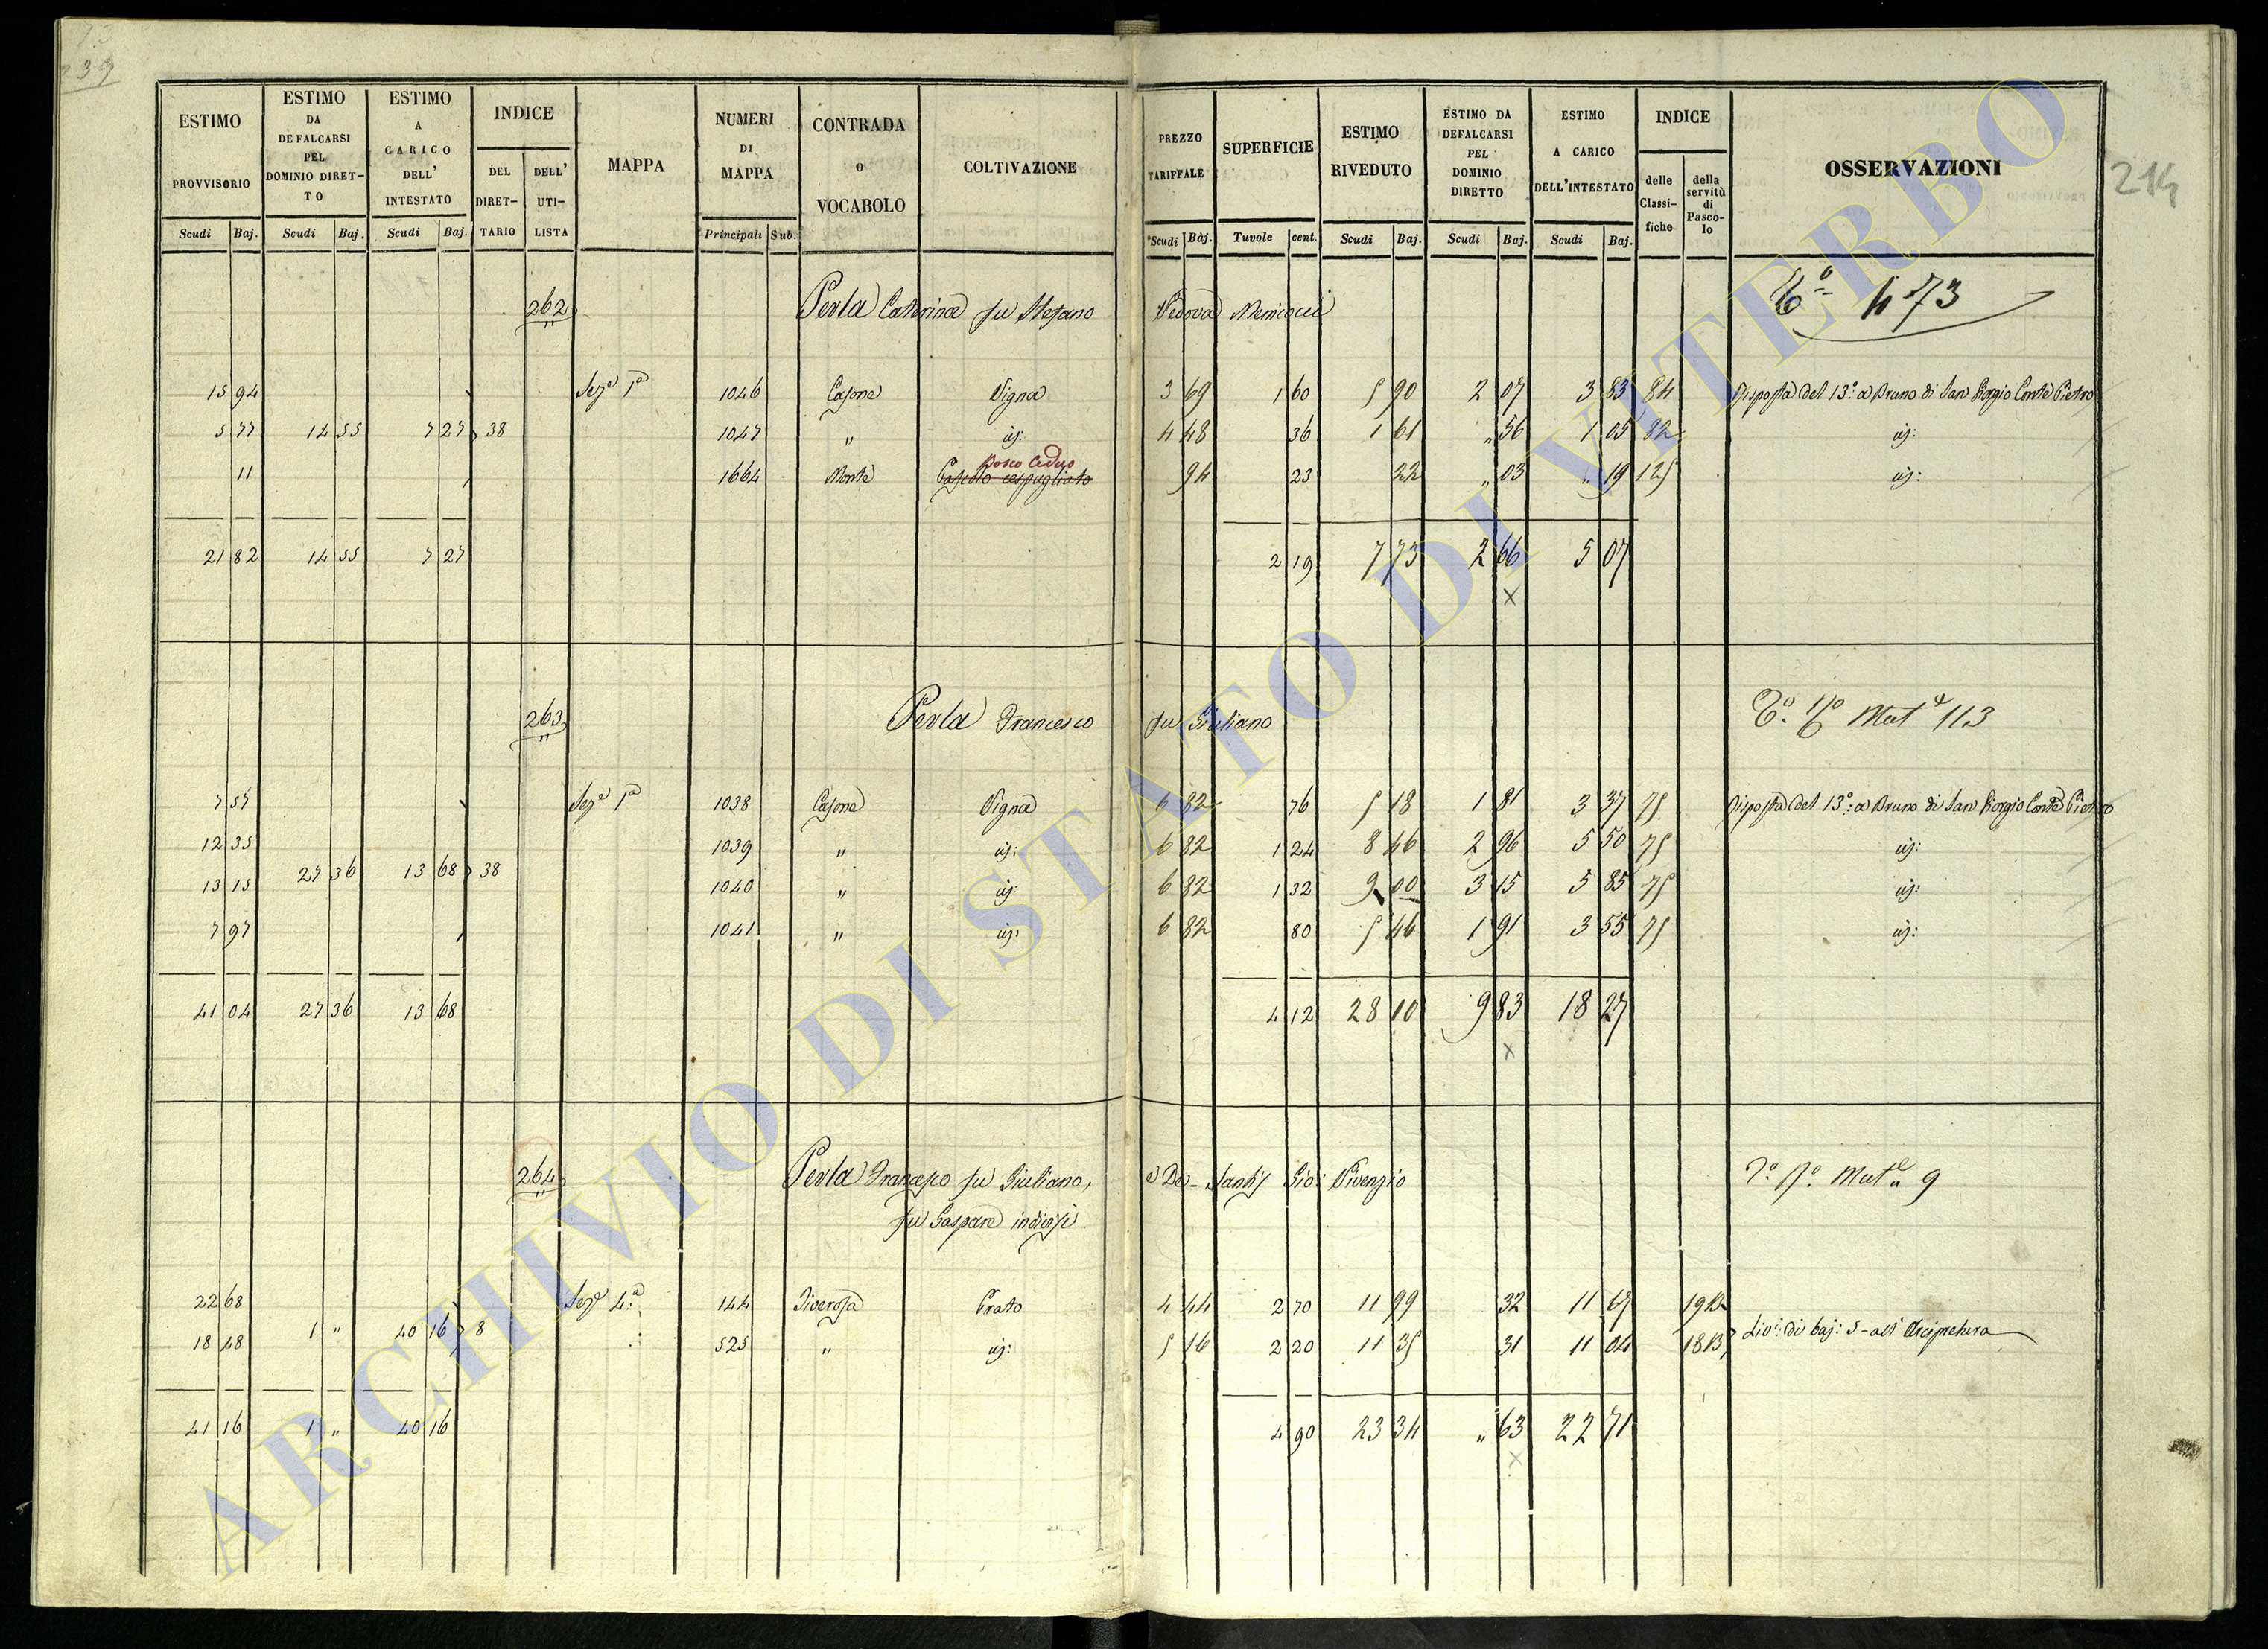 239
214
ESTIMO PROVVISORIO Scudi Baj.
ESTIMO DA DEFALCARSI PEL DOMINIO DIRETTO Scudi Baj.
ESTIMO A CARICO DELL' INTESTATO Scudi Baj.
INDICE DEL DIRETTARIO DELL' UTILISTA
MAPPA
NUMERI DI MAPPA Principali Sub.
CONTRADA O VOCABOLO
COLTIVAZIONE
PREZZO TARIFFALE Scudi Baj.
SUPERFICIE Tavole cent.
ESTIMO RIVEDUTO Scudi Baj.
ESTIMO DA DEFALCARSI PEL DOMINIO DIRETTO Scudi Baj.
ESTIMO A CARICO DELL'INTESTATO Scudi Baj.
INDICE delle Classifiche della servitù di Pascolo
OSSERVAZIONI
262 Perla Caterina fu Stefano Vedova Menicocci
473
15 94 Sezе 1a 1046 Casone Vigna 3 69 1 60 5 90 2 07 3 83 84 Risposta del 13º: a Bruno di San Giorgio Conte Pietro
5 77 14 55 7 27 38 1047 " id: 4 48 36 1 61 " 56 1 05 82 id:
11 1664 Monte Pascolo cespugliato Bosco Ceduo 94 23 22 " 03 " 19 125 id:
21 82 14 55 7 27 2 19 7 73 2 66 5 07
x
263 Perla Francesco fu Giuliano
113
7 57 Seze 1a 1038 Casone Vigna 6 82 76 5 18 1 81 3 37 75 Risposta del 13º: a Bruno di San Giorgio Conte Pietro
12 35 1039 " id: 6 82 1 24 8 46 2 96 5 50 75 id:
27 36 13 68 38
13 15 1040 " id: 6 82 1 32 9 00 3 15 5 85 75 id:
7 97 1041 " id: 6 82 80 5 46 1 91 3 55 75 id:
41 04 27 36 13 68 4 12 28 10 9 83 18 27
x
264 Perla Francesco fu Giuliano, e De-Santis Gio: Vivenzio
fu Gaspare indivisi
9
22 68 Seze 4a 144 Piverosa Prato 4 44 2 70 11 99 32 11 67 19 B
1 " 40 16 8 Livo: di baj: 5 - all' Arcipretura
18 48 525 " id: 5 16 2 20 11 35 31 11 04 18 B
41 16 1 " 40 16 4 90 23 34 " 63 22 71
x
ARCHIVIO DI STATO DI VITERBO